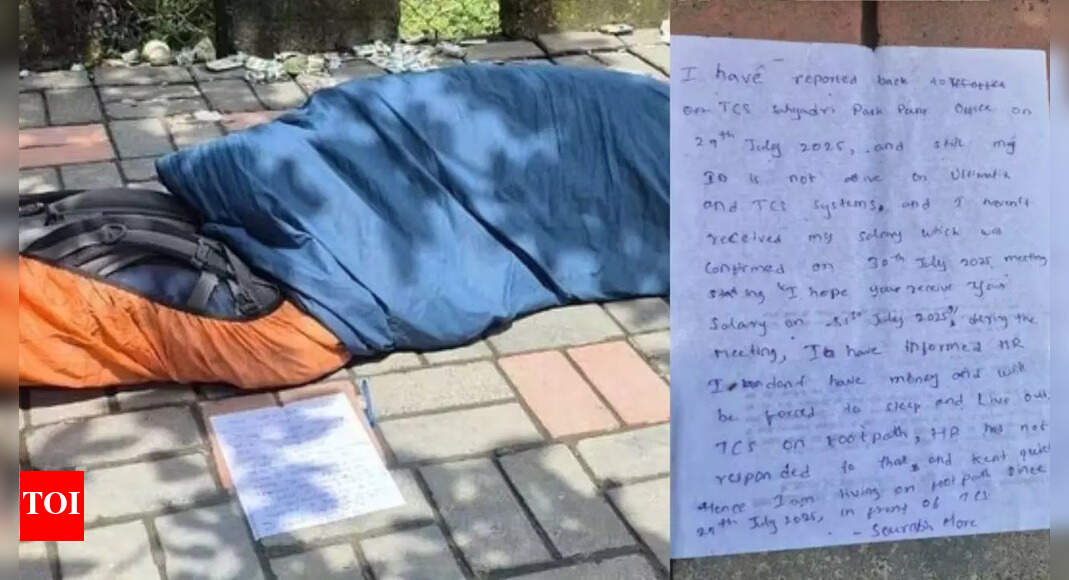 TOI
I have reported back to
on TCS Sahyadri Park Pune Office on
29th July 2025, and still my
ID is not active on Ultimatix
and TCS systems, and I haven't
received my salary which was
confirmed on 30th July 2025 meeting
stating "I hope you receive your
salary on 31st July 2025", during the
meeting, I have informed HR
I don't have money and will
be forced to sleep and Live out
TCS on footpath, HR has not
responded to that, and kept quiet
Hence I am living on footpath since
29th July 2025, in front of TCS
- Saurabh More